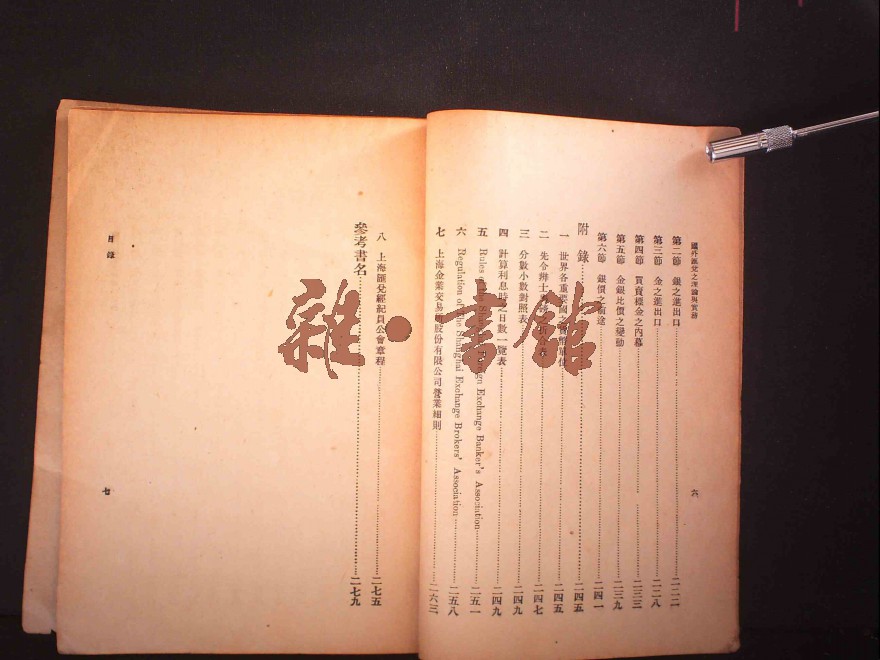 國外滙兌之理論與實務
六
第二節 銀之進出口……二二二
第三節 金之進出口……二二八
第四節 買賣標金之內幕……二三三
第五節 金銀比價之變動……二三九
第六節 銀價之前途……二四一
附 錄……二四五
一 世界各重要國之貨幣單位……二四五
二 先令辨士……二四七
三 分數小數對照表……二四九
四 計算利息時之日數一覽表……二四九
五 Rules of the Shanghai Foreign Exchange Banker's Association……二五一
六 Regulation of the Shanghai Exchange Brokers' Association……二五八
七 上海金業交易所股份有限公司營業細則……二六三
八 上海匯兌經紀員公會章程……二七五
參考書名……二七九
目錄
七
雜·書館